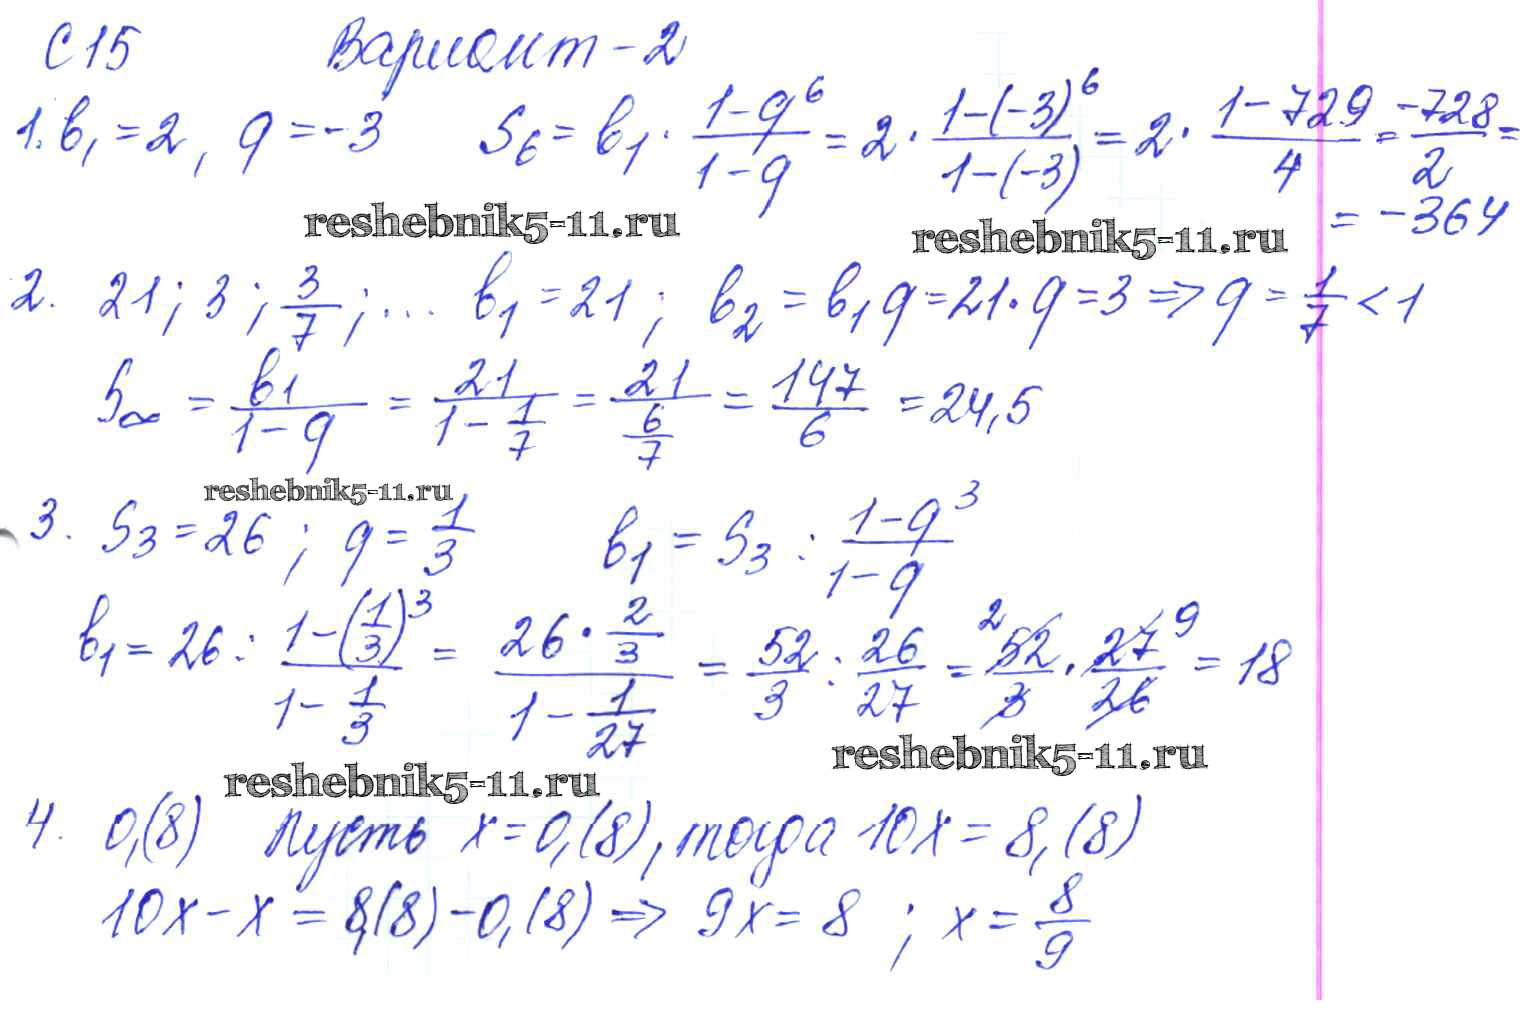 С15 Вариант-2
1. b₁ = 2, q = -3 S₆ = b₁ · (1-q⁶)/(1-q) = 2 · (1-(-3)⁶)/(1-(-3)) = 2 · (1-729)/4 = -728/2 =
= -364
reshebnik5-11.ru reshebnik5-11.ru
2. 21; 3; 3/7; ... b₁ = 21; b₂ = b₁q = 21·q = 3 => q = 1/7 < 1
S∞ = b₁/(1-q) = 21/(1-1/7) = 21/(6/7) = 147/6 = 24,5
reshebnik5-11.ru
3. S₃ = 26; q = 1/3 b₁ = S₃ : (1-q³)/(1-q)
b₁ = 26 : (1-(1/3)³)/(1-1/3) = (26 · 2/3)/(1-1/27) = 52/3 : 26/27 = ²52/3 · 27⁹/26 = 18
reshebnik5-11.ru reshebnik5-11.ru
4. 0,(8) Пусть x = 0,(8), тогда 10x = 8,(8)
10x - x = 8,(8) - 0,(8) => 9x = 8 ; x = 8/9